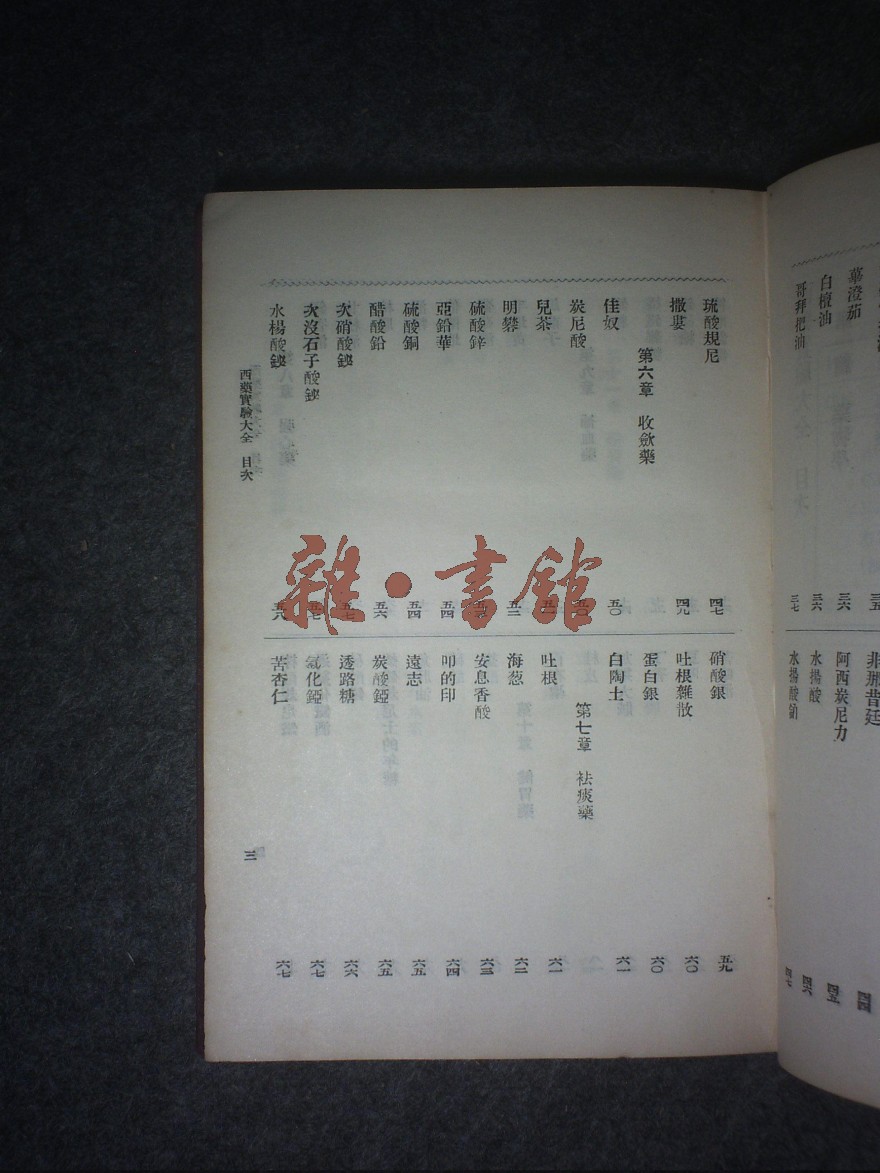 蓽澄茄 三六
白檀油 三六
哥拜把油 三七
非那昔廷 四四
阿西炭尼力 四五
水楊酸 四六
水楊酸鈉 四七
琉酸規尼 四七
撒婁 四九
第六章 收歛藥
佳奴 五〇
炭尼酸 五〇
兒茶
明礬 五二
硫酸鋅
亞鉛華 五四
硫酸銅 五四
醋酸鉛 五六
次硝酸鉍 五七
次沒石子酸鉍 五七
水楊酸鉍 五八
硝酸銀 五九
吐根雜散 六〇
蛋白銀 六〇
白陶土 六一
第七章 袪痰藥
吐根 六一
海葱 六二
安息香酸 六三
叩的印 六四
遠志 六五
炭酸錏 六五
透路糖 六六
氯化錏 六七
苦杏仁 六七
西藥實驗大全 目次
三
雜·書館